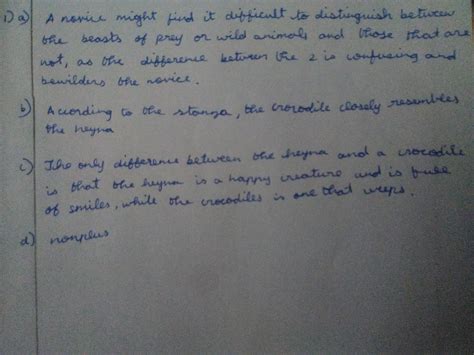 1) a) A novice might find it difficult to distinguish between
the beasts of prey or wild animals and those that are
not, as the difference between the 2 is confusing and
bewilders the novice.
b) According to the stanza, the crocodile closely resembles
the heyna
c) The only difference between the heyna and a crocodile
is that the heyna is a happy creature and is full
of smiles, while the crocodiles is one that weeps.
d) nonplus